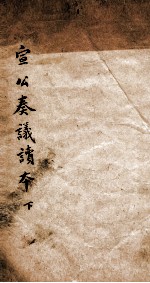 宣公奏議讀本下